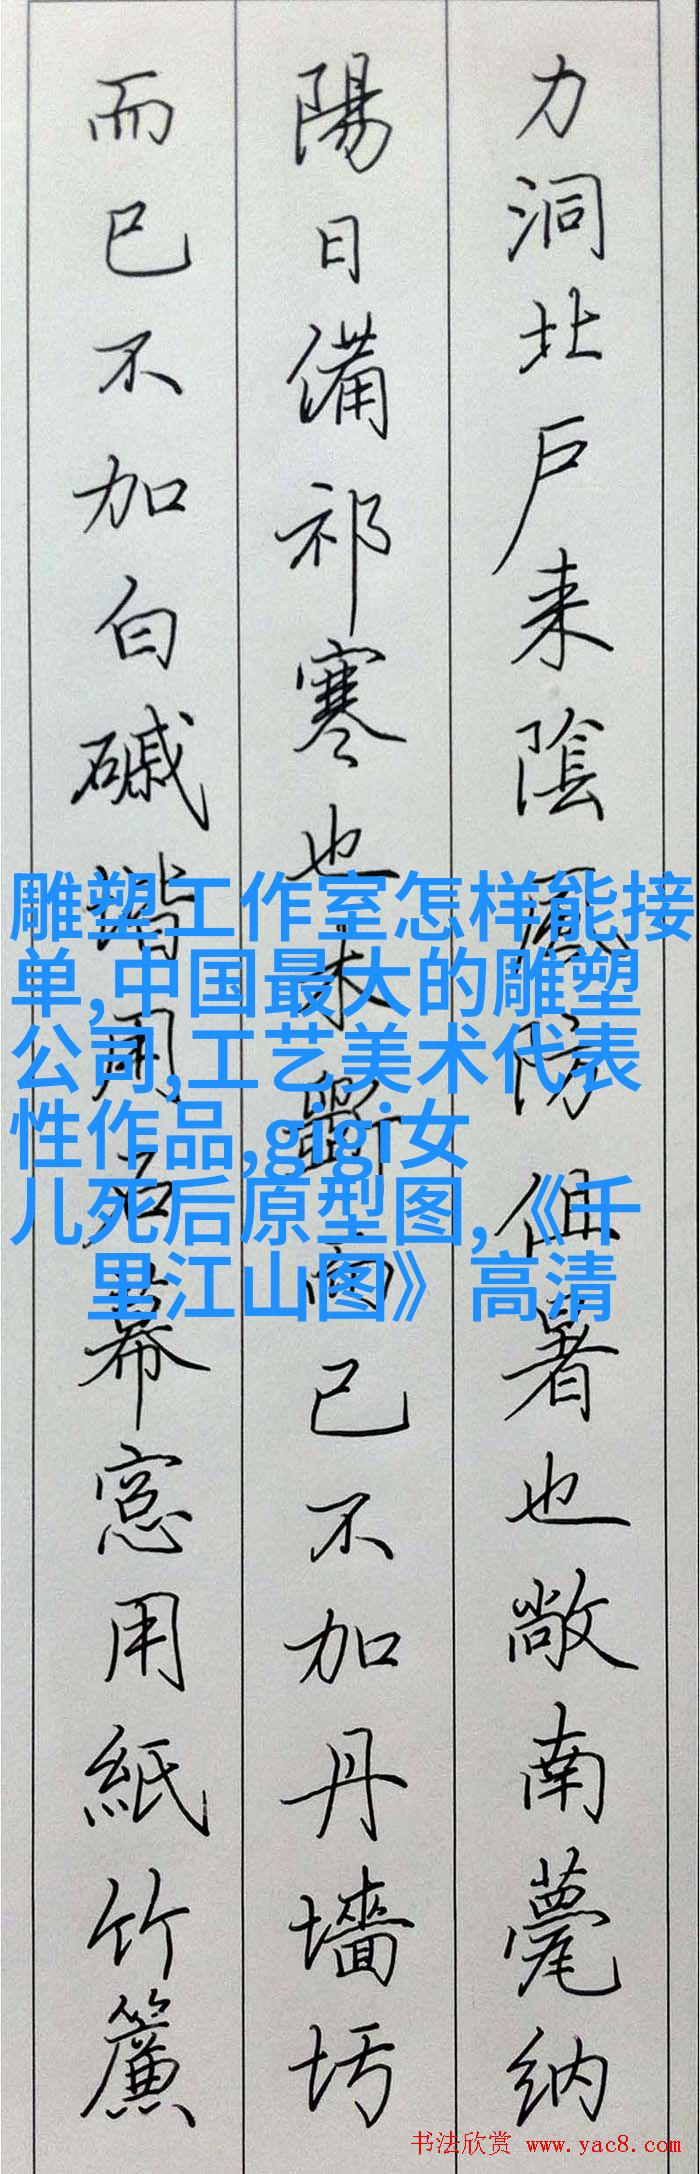 力洞北户来陰風防徂暑也敞南甍纳
陽日備祁寒也木斲而已不加丹墻圬
而已不加白磩堦用石幂窓用紙竹簾
雕塑工作室怎样能接
单,中国最大的雕塑
公司,工艺美术代表
性作品,gigi女
儿死后原型图,《千
里江山图》高清
书法欣赏 www.yac8.com